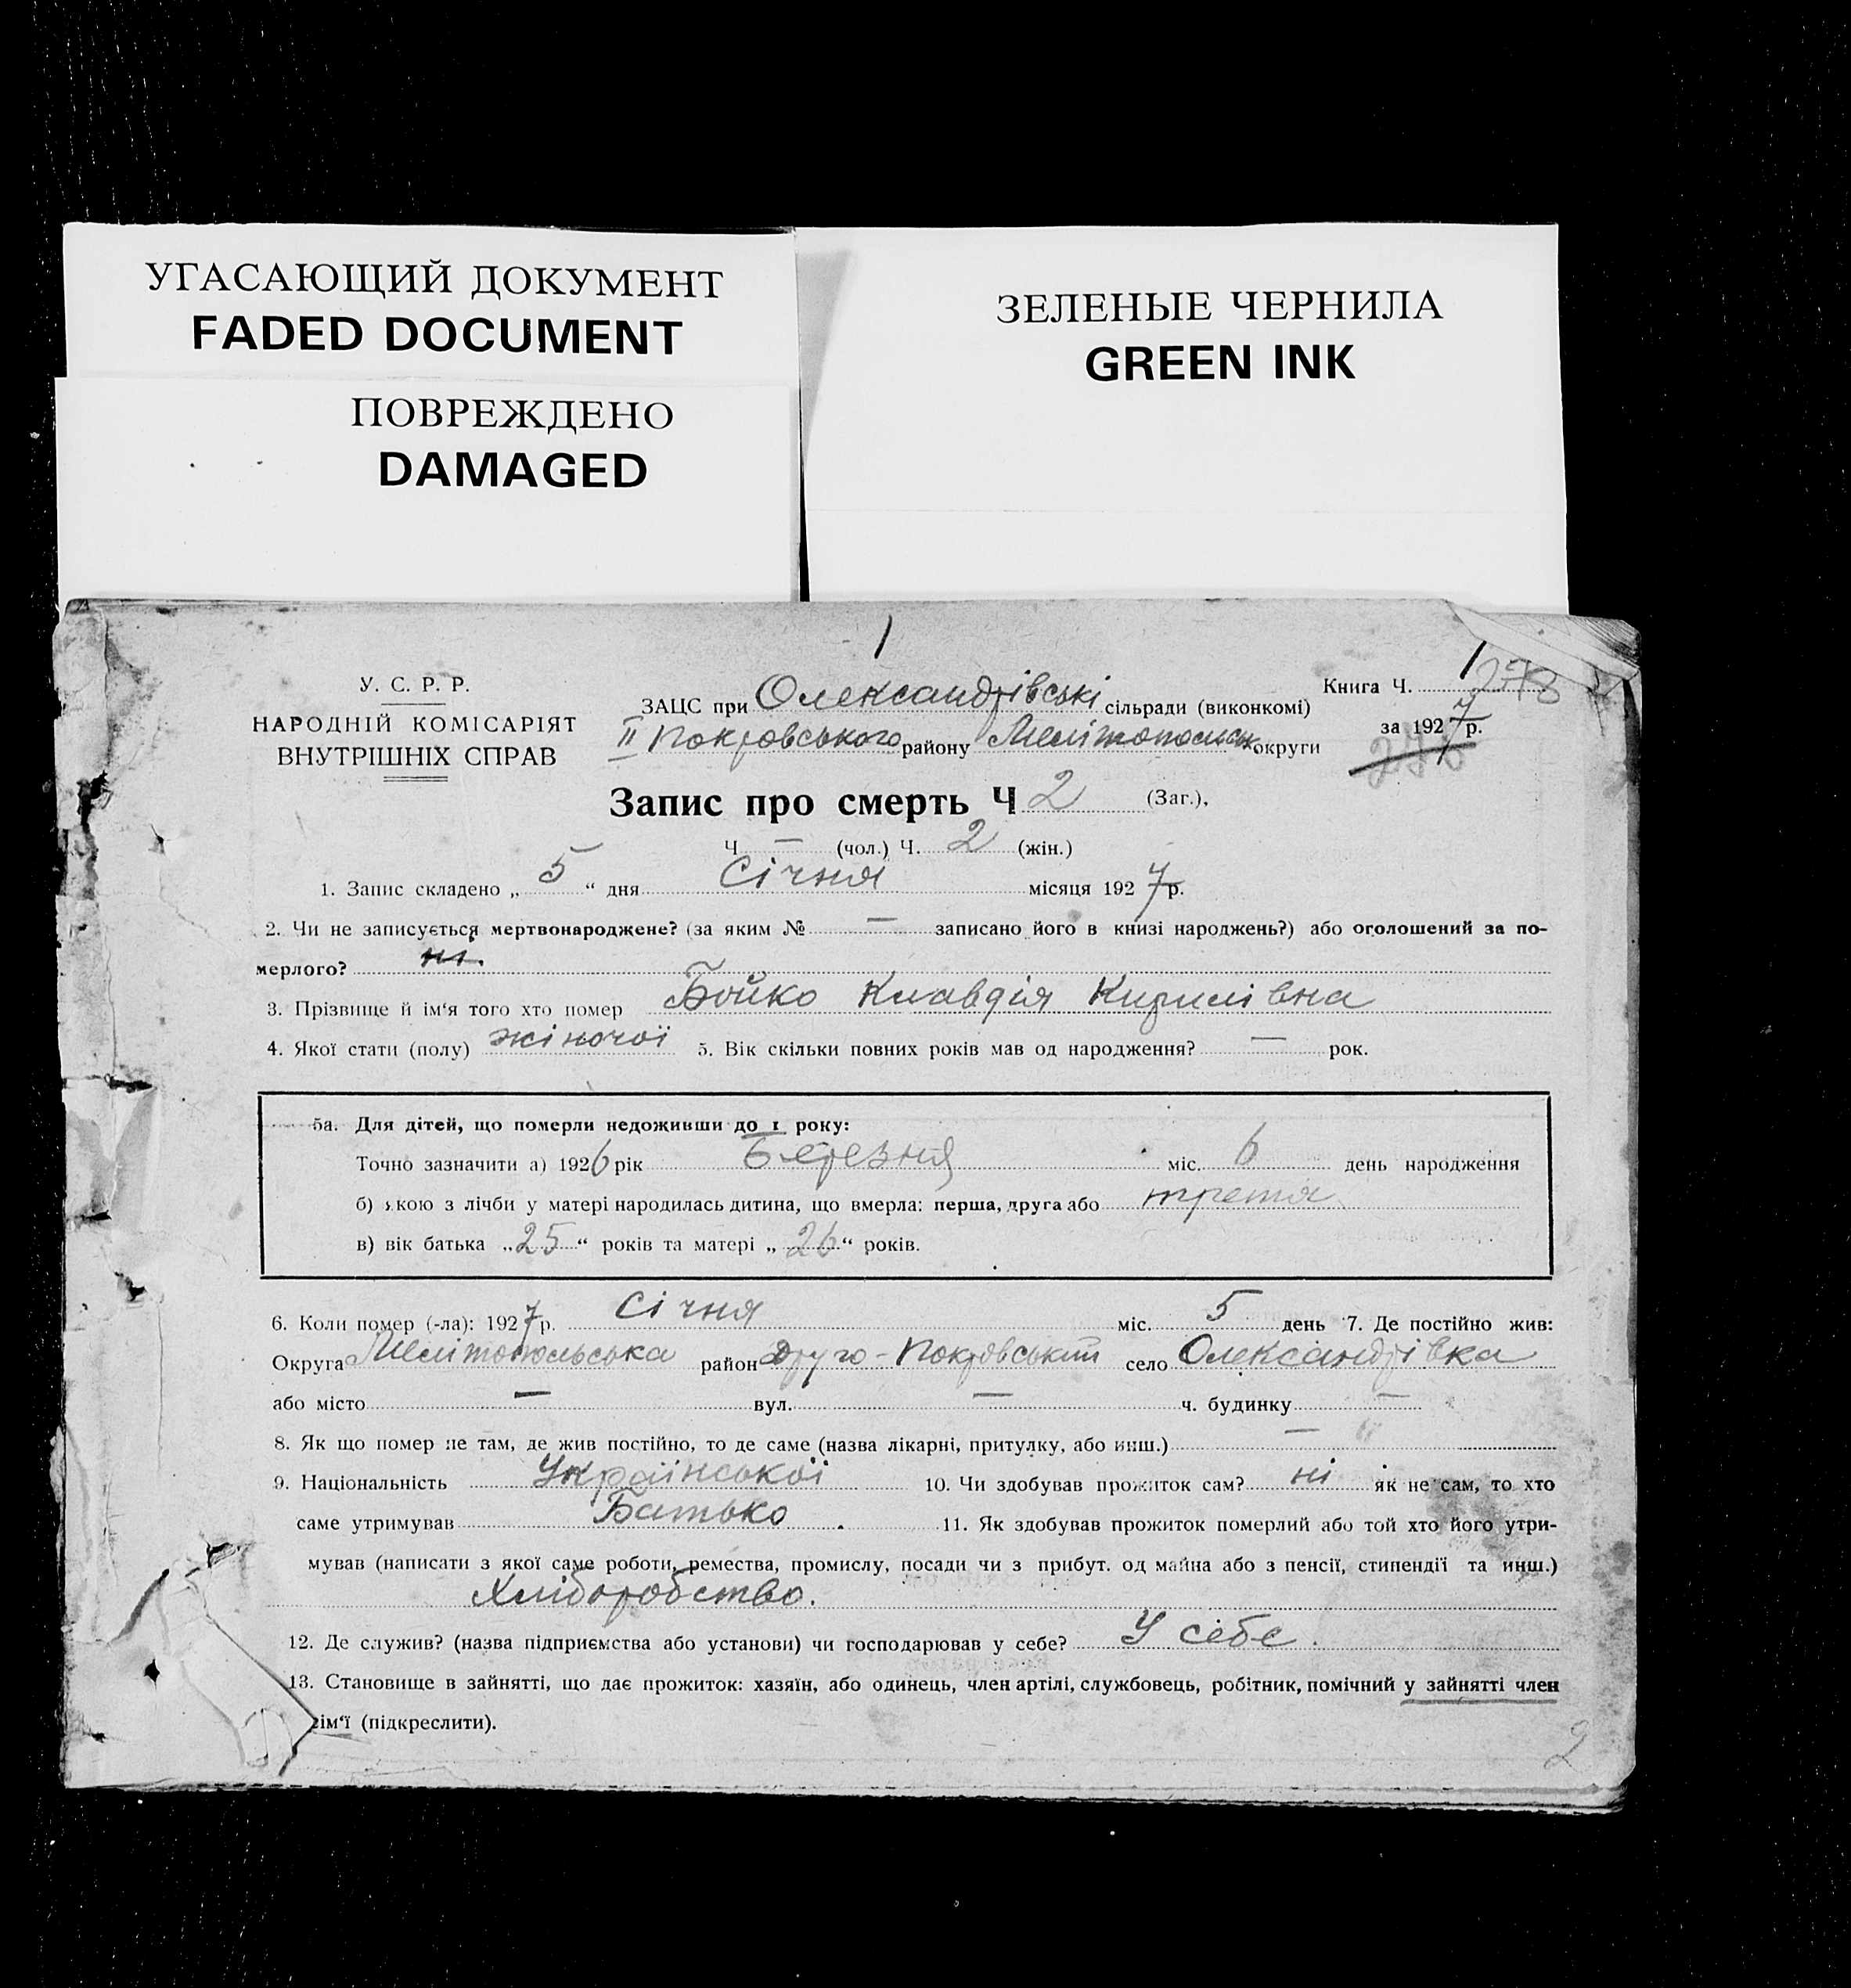 УГАСАЮЩИЙ ДОКУМЕНТ
FADED DOCUMENT
ПОВРЕЖДЕНО
DAMAGED
ЗЕЛЕНЫЕ ЧЕРНИЛА
GREEN INK
1
1
У. С. Р. Р.
НАРОДНІЙ КОМІСАРІЯТ
ВНУТРІШНІХ СПРАВ
Книга Ч. 278
за 1927 р.
ЗАЦС при Олександрівські сільради (виконкомі)
II Покровського району Мелітопольськ округи
Запис про смерть Ч 2 (Заг.),
Ч — (чол.) Ч. 2 (жін.)
1. Запис складено „ 5 “ дня Січня місяця 1927 р.
2. Чи не записується мертвонароджене? (за яким № — записано його в книзі народжень?) або оголошений за по-
мерлого? ні.
3. Прізвище й ім‘я того хто помер Бойко Клавдія Кирилівна
4. Якої стати (полу) жіночої 5. Вік скільки повних років мав од народження? — рок.
5а. Для дітей, що померли недоживши до 1 року:
Точно зазначити а) 1926 рік березня міс. 6 день народження
б) якою з лічби у матері народилась дитина, що вмерла: перша, друга або третя
в) вік батька „ 25 “ років та матері „ 26 “ років.
6. Коли помер (-ла): 1927 р. Січня міс. 5 день 7. Де постійно жив:
Округа Мелітопольська район Друго-Покровський село Олександрівка
або місто — вул. — ч. будинку —
8. Як що помер не там, де жив постійно, то де саме (назва лікарні, притулку, або инш.) —
9. Національність Української 10. Чи здобував прожиток сам? ні як не сам, то хто
саме утримував Батько. 11. Як здобував прожиток померлий або той хто його утри-
мував (написати з якої саме роботи, ремества, промислу, посади чи з прибут. од майна або з пенсії, стипендії та инш.)
Хліборобство.
12. Де служив? (назва підприємства або установи) чи господарював у себе? У себе.
13. Становище в зайнятті, що дає прожиток: хазяїн, або одинець, член артілі, службовець, робітник, помічний у зайнятті член
сім‘ї (підкреслити).
2